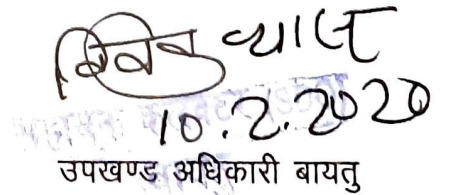 व्यास
10.2.2020
उपखण्ड अधिकारी बायतु